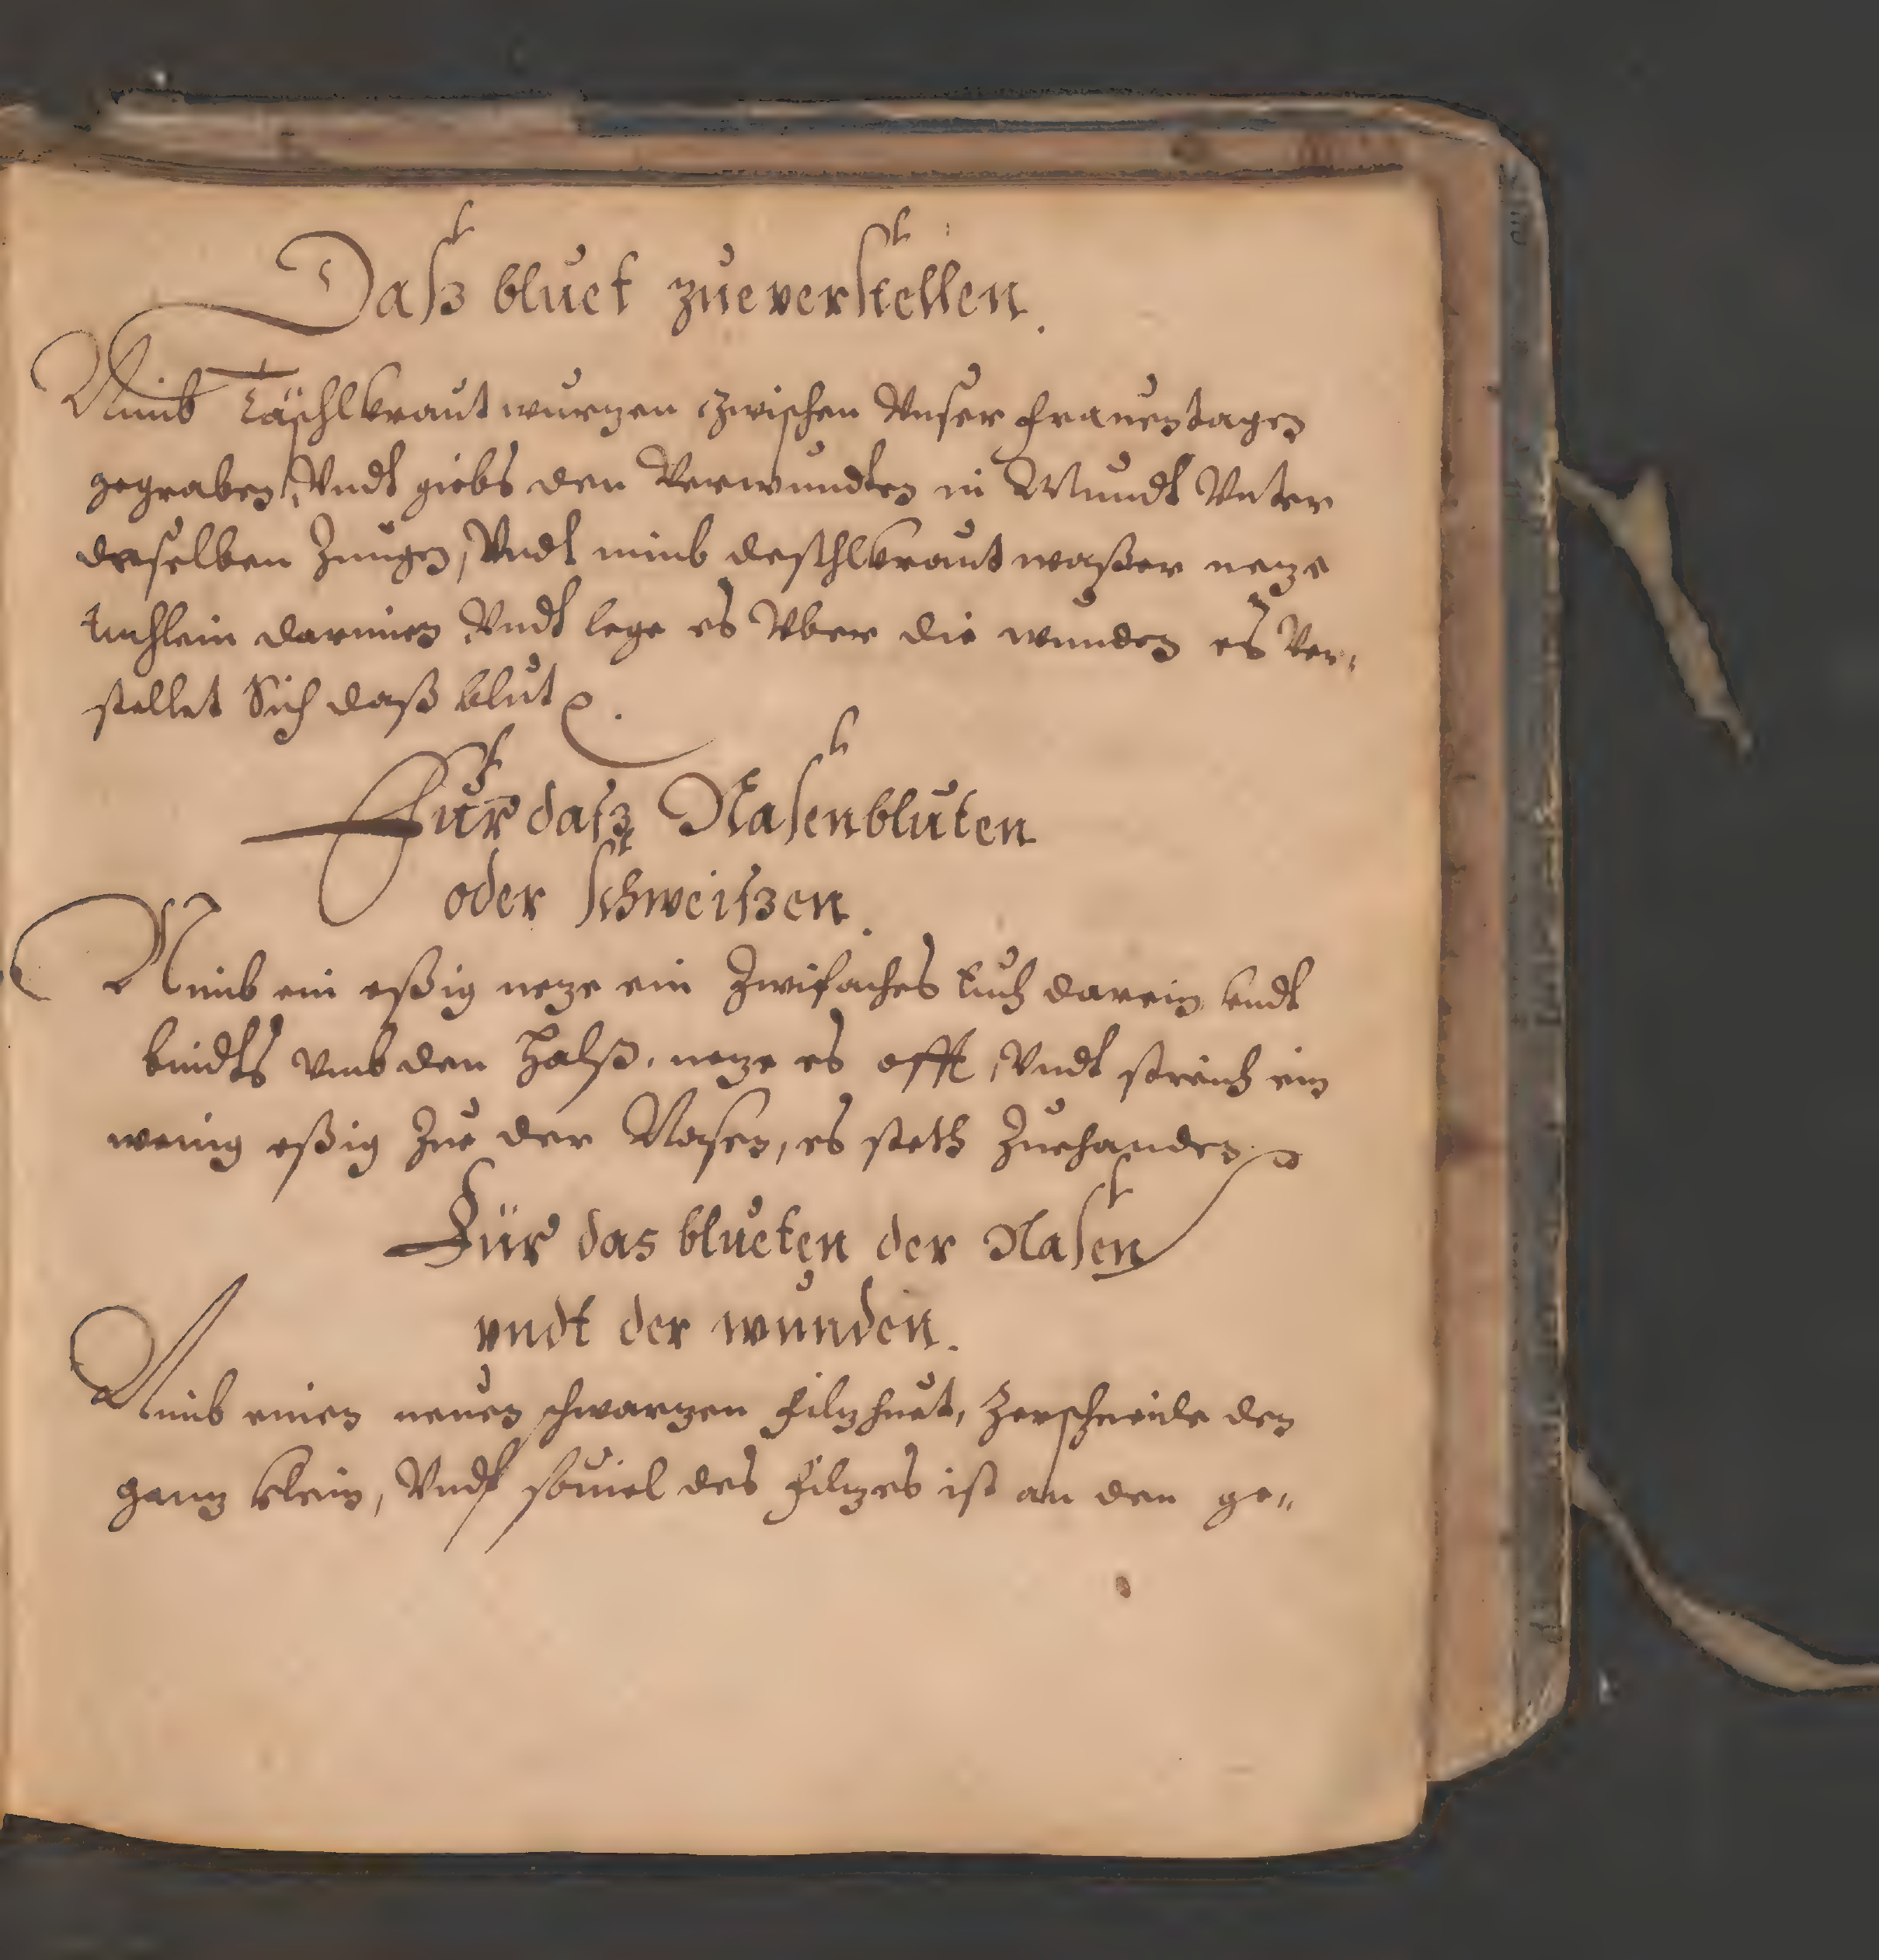 Daß bluet zueverstellen.
Nimb Täschlkraut wurzen zwischen Unser frauentagen
gegraben, Undt giebs den Verwundten in Mundt Unter
derselben Zungen, Undt nimb deschlkraut waßer neze
tüchlein darinnen Undt lege es Uber die wunden es Ver-
stellet Sich daß blut.
Für daß Nasenbluten
oder schweißen.
Nimb ein eßig neze ein Zwifaches tuch darein undt
bindts umb den Halß, neze es offt, Undt streich ein
wenig eßig Zue der Nasen, es steth Zuehanden
Für das blueten der Nasen
undt der wunden.
Nimb einen neuen schwarzen filzhuet, Zerschneide den
ganz klein, Undt souiel des filzes ist an den ge-